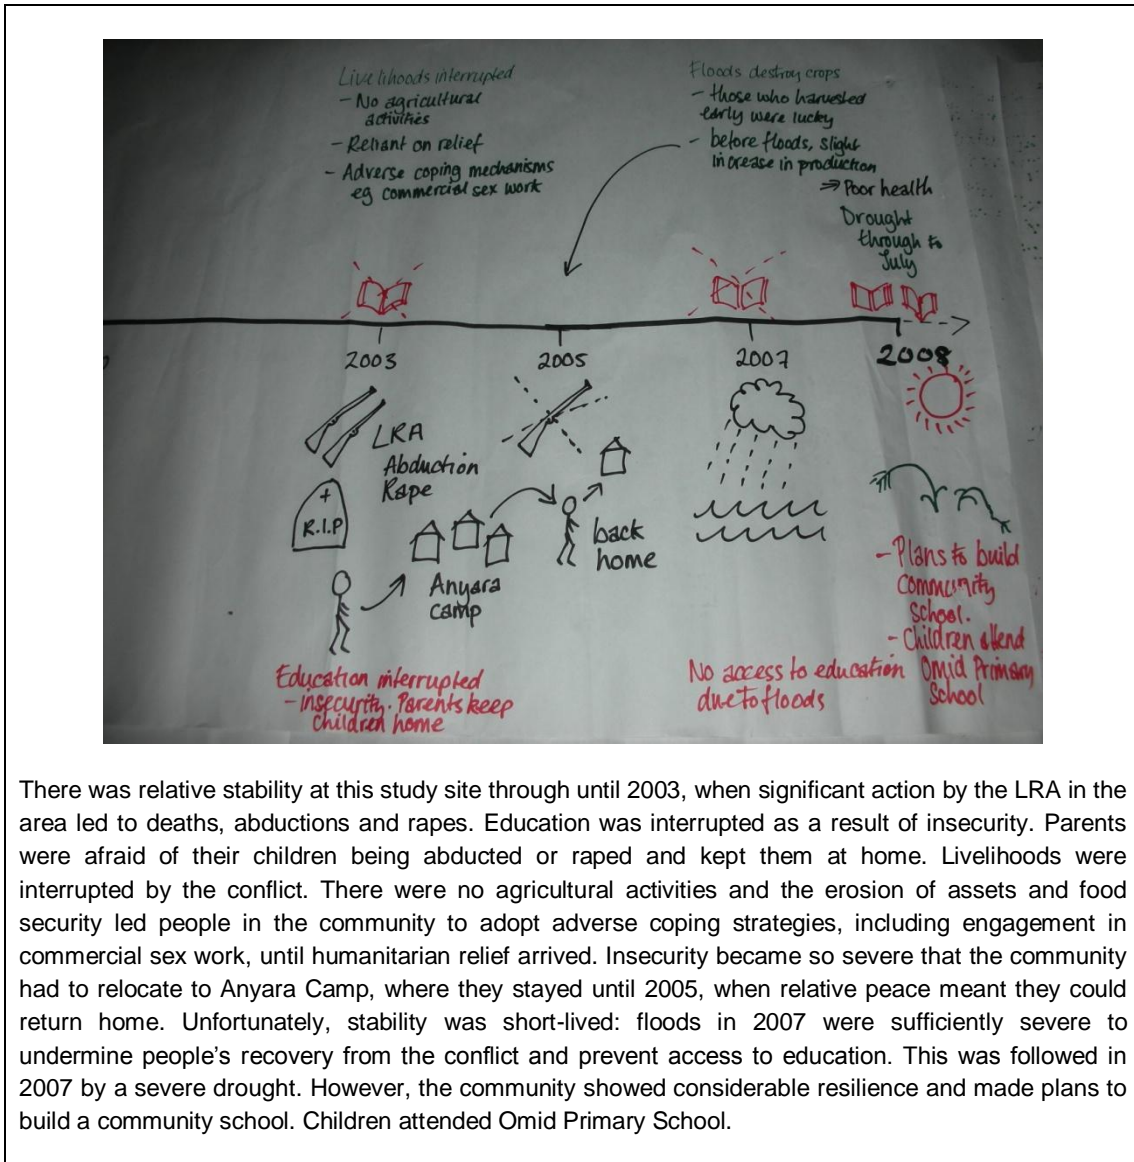 Livelihoods interrupted
- No agricultural
activities
- Reliant on relief
- Adverse coping mechanisms
eg commercial sex work
Floods destroy crops
- those who harvested
early were lucky
- before floods, slight
increase in production
⇒ Poor health
Drought
through to
July
2003
2005
2007
2008
LRA
Abduction
Rape
R.I.P
Anyara
camp
back
home
Education interrupted
- insecurity. Parents keep
children home
No access to education
due to floods
- Plans to build
community
school.
- Children attend
Omid Primary
School
There was relative stability at this study site through until 2003, when significant action by the LRA in the
area led to deaths, abductions and rapes. Education was interrupted as a result of insecurity. Parents
were afraid of their children being abducted or raped and kept them at home. Livelihoods were
interrupted by the conflict. There were no agricultural activities and the erosion of assets and food
security led people in the community to adopt adverse coping strategies, including engagement in
commercial sex work, until humanitarian relief arrived. Insecurity became so severe that the community
had to relocate to Anyara Camp, where they stayed until 2005, when relative peace meant they could
return home. Unfortunately, stability was short-lived: floods in 2007 were sufficiently severe to
undermine people's recovery from the conflict and prevent access to education. This was followed in
2007 by a severe drought. However, the community showed considerable resilience and made plans to
build a community school. Children attended Omid Primary School.